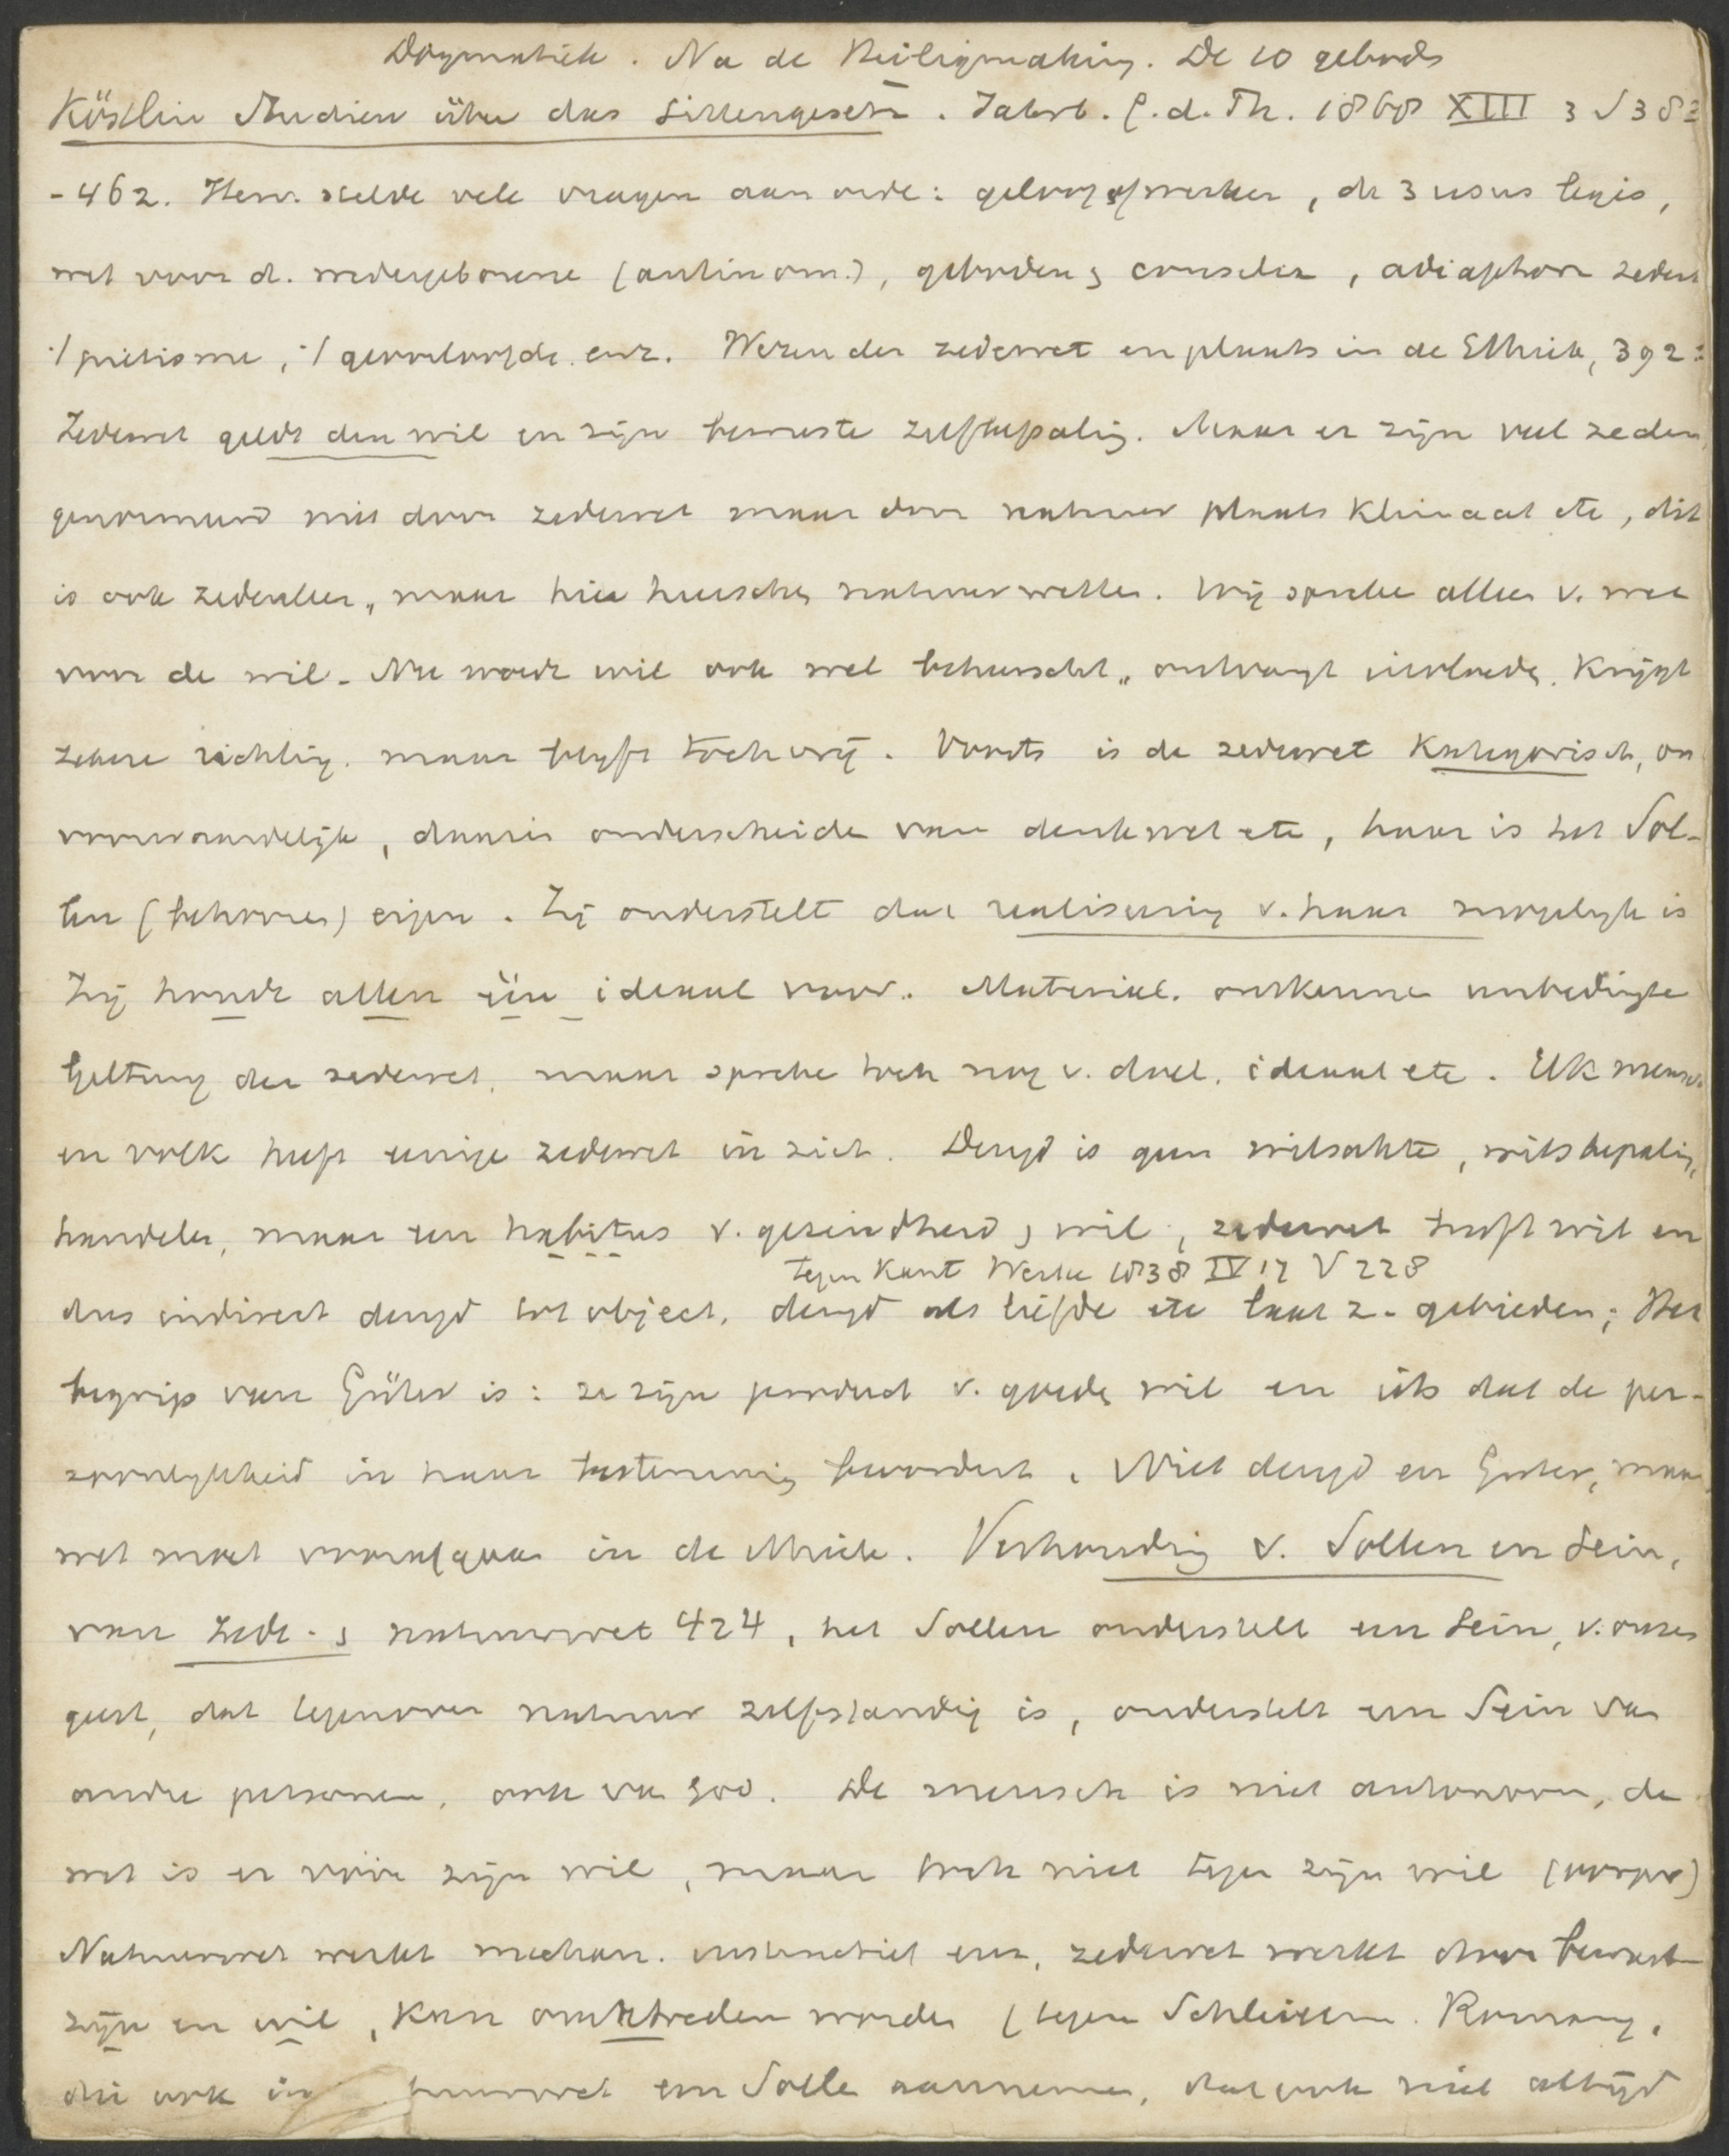 Dogmatiek. Na de Heiligmaking. De 10 geboden
Köstlin Studien über das Sittengesetz. Jahrb. f. d. Th. 1868 XIII 3 S 383
-462. Herv. stelde vele vragen aan orde: geloof of werken, de 3 usus legis,
wet voor d. wedergeborene (antinom.), geboden, consilia, adiaphora zeden
:/ pietisme, :/ geoorloofde enz. Wezen der zedewet en plaats in de Ethiek, 392:
Zedewet geldt den wil en zijn bewuste zelfbepaling. Maar er zijn veel zeden,
genormeerd niet door zedewet maar door natuur plaats klimaat etc, dit
is ook zedenleer, maar hier heerschen natuurwetten. Wij spreken alleen v. wet
voor de wil. Nu wordt wil ook wel beheerscht, ontvangt invloeden, krijgt
zekere richting, maar blijft toch vrij. Voorts is de zedewet Kategorisch, on
voorwaardelijk, daarin onderscheiden van denkwet etc, haar is het Sol-
len (behooren) eigen. Zij onderstelt dat realiseering v. haar mogelijk is
Zij houdt allen één ideaal voor. Material. ontkennen unbedingte
Geltung der zedewet, maar spreken toch nog v. doel, ideaal etc. Elk mensch
en volk heeft eenige zedewet in zich. Deugd is geen wilsakte, wilsbepaling,
handelen, maar een habitus v. gezindheid, wil; zedewet heeft wil en
tegen Kant Werke 1838 IV 17 V 228
dus indirect deugd tot object, deugd als liefde etc laat z. gebieden; Het
begrip van Güter is: ze zijn product v. goeden wil en iets dat de per-
soonlijkheid in haar bestemming bevordert. Niet deugd en Güter, maar
wet moet voorafgaan in de Ethiek. Verhouding v. Sollen en Sein,
van zede- , natuurwet 424, het Sollen onderstelt een Sein, v. onzen
geest, dat tegenover natuur zelfstandig is, onderstelt een Sein van
andre personen, ook van God. De mensch is niet autonoom, de
wet is er vóór zijn wil, maar toch niet tegen zijn wil
Natuurwet werkt mechan. instinctief enz, zedewet werkt door bewust-
zijn en wil, kan overtreden worden (tegen Schleierm. Romang,
die ook in natuurwet een Solle aannemen, dat ook niet altijd